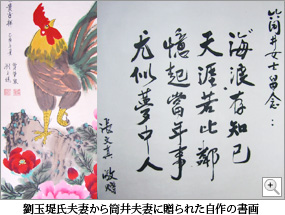 筒井女士留念：
海浪存知己
天涯若比鄰
憶起當年事
尤似夢中人
劉玉堤氏夫妻から筒井夫妻に贈られた自作の書画